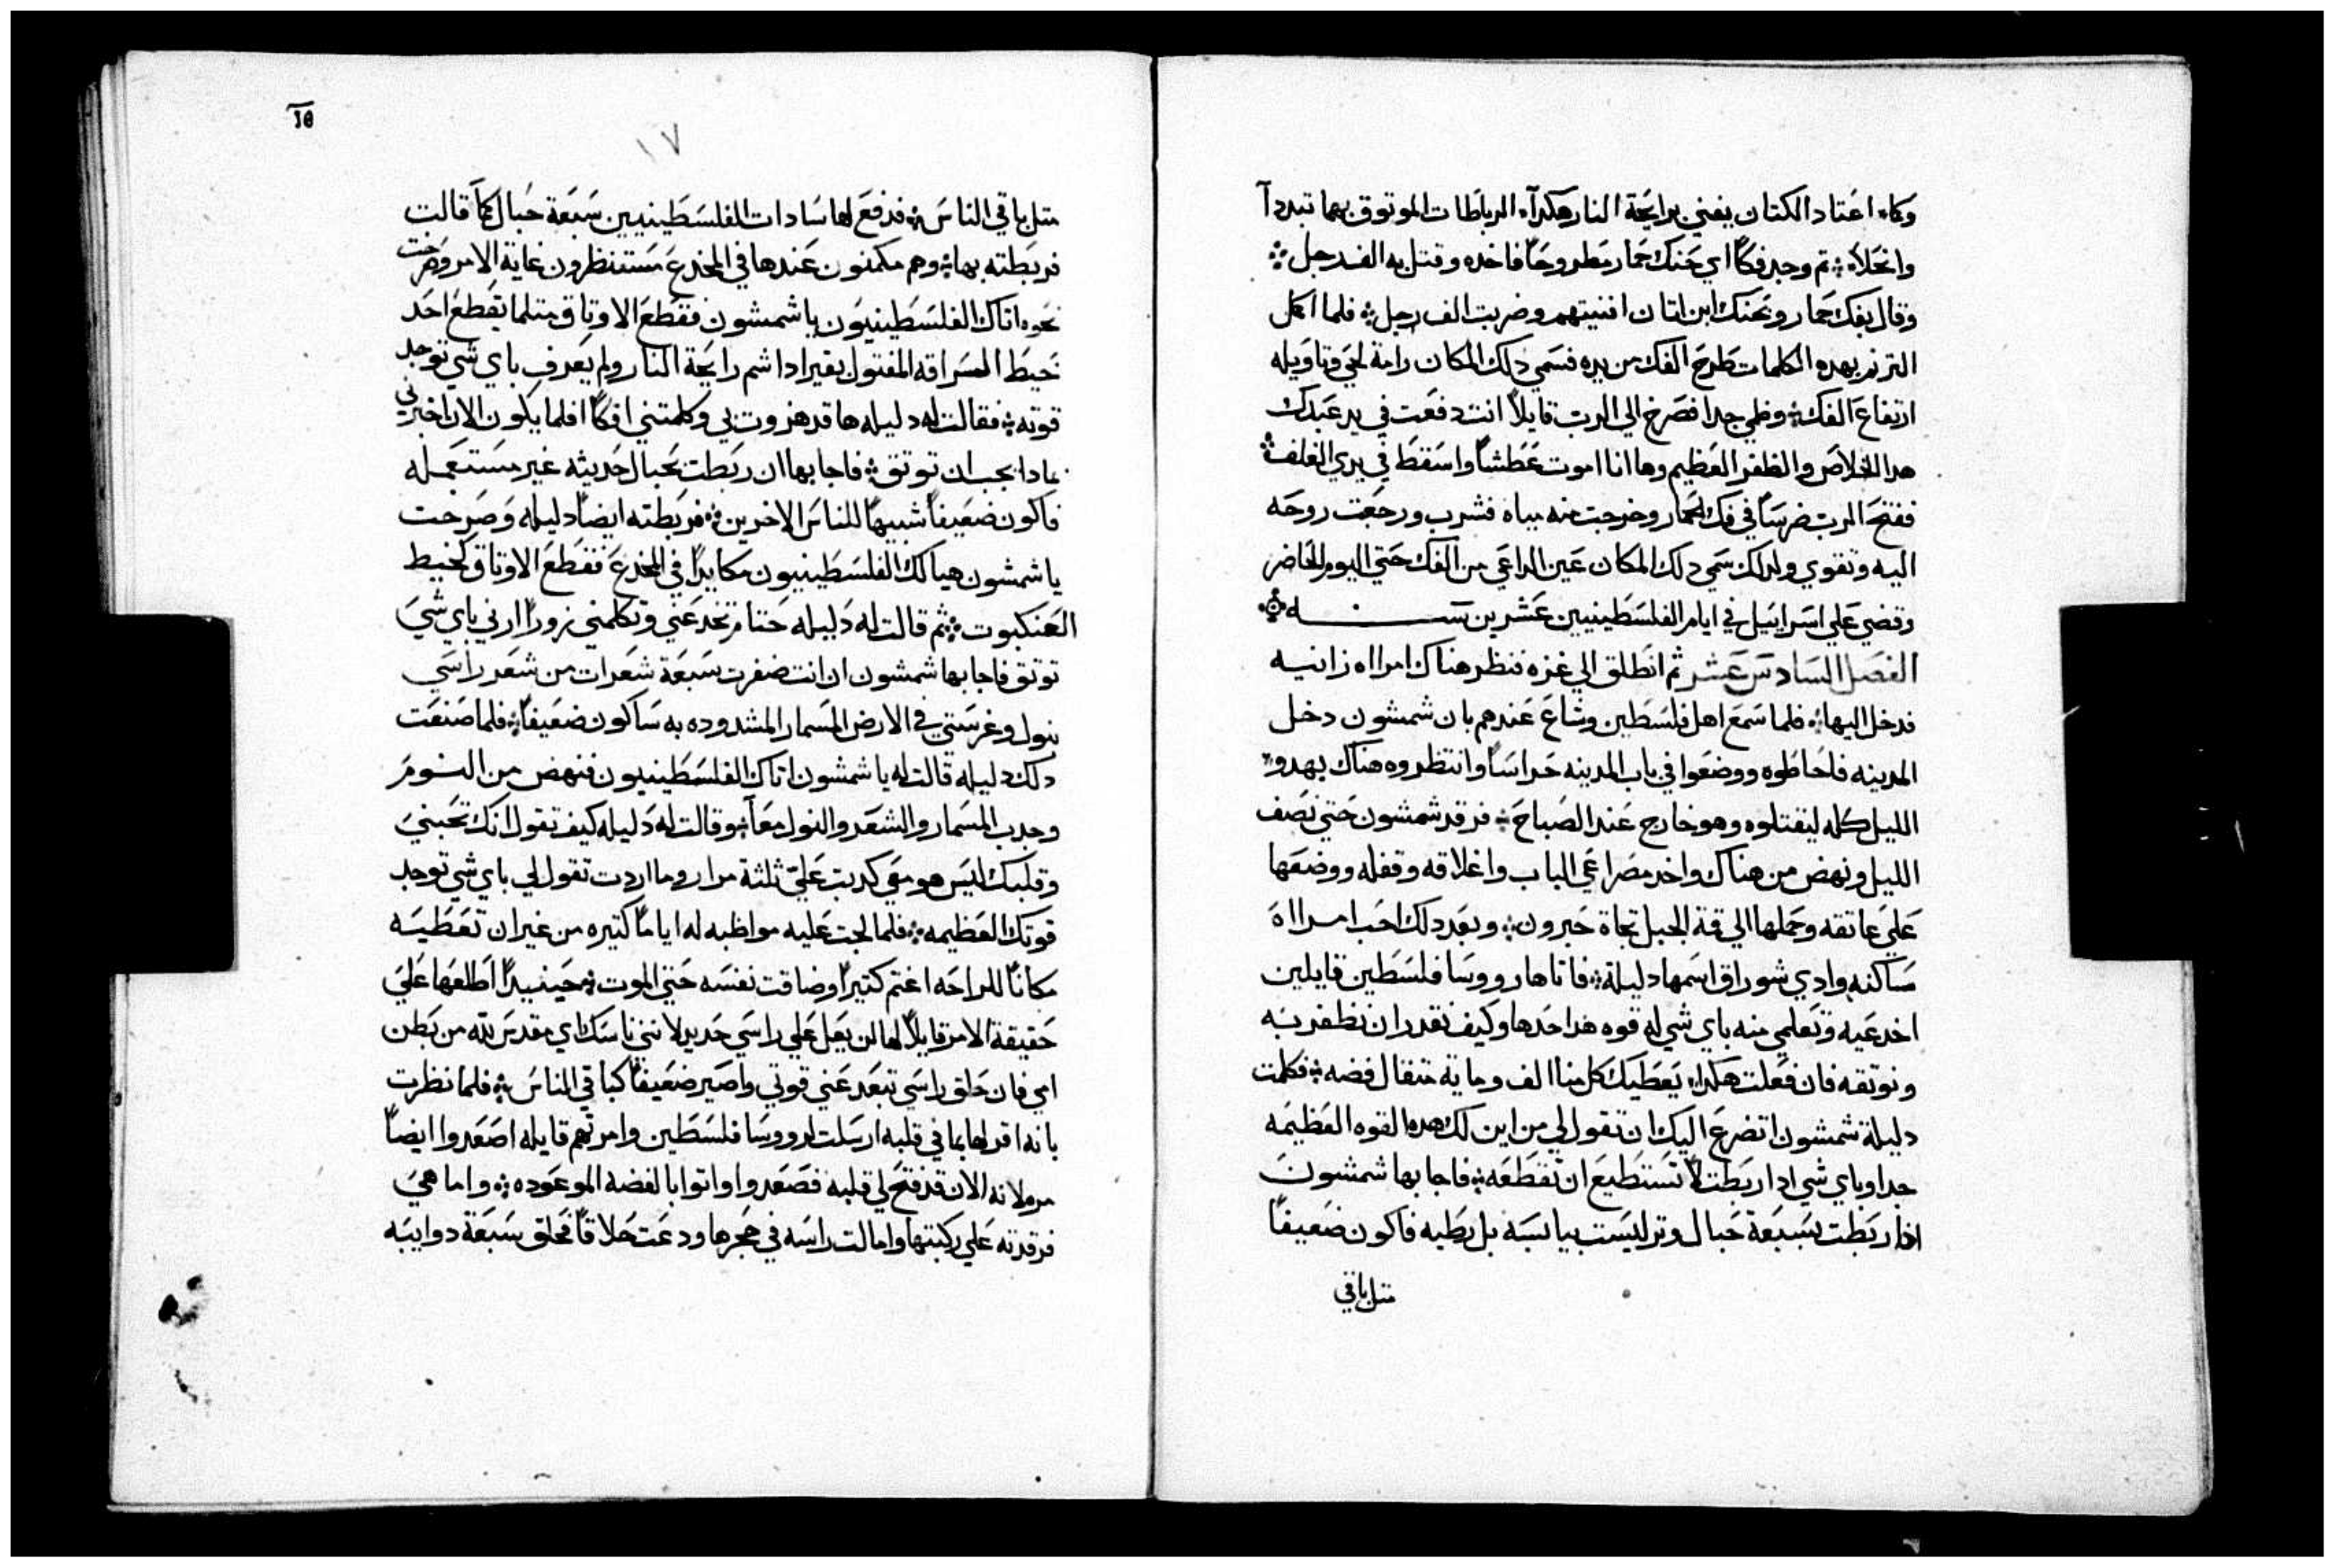 وكما اعتاد الكتان يفني برايحة النار هكدآ الرباطات الموتوق بهما تبددآ
وانحلآ ثم وجد فكاً اي حنك حمار مطروحاً فاخده وقتل به الف رجل
وقال بفك حمار وبحنك ابن اتان افنيتهم وضربت الف رجل فلما اكمل
الترنم بهده الكلمات طرح الفك من يده فسمي دلك المكان رامة لحي وتاويله
ارتفاع الفك وظمي جدا فصرخ الي الرب قايلاً انت دفعت في يد عبدك
هدا الخلاص والظفر العظيم وها انا اموت عطشاً واسقط في يدي الغلف
ففتح الرب ضرساً في فك الحمار وخرجت منه مياه فشرب ورجعت روحه
اليه وتقوي ولدلك سمي دلك المكان عين الداعي من الفك حتي اليوم الحاضر
وقضي علي اسراييل في ايام الفلسطينيين عشرين سنه
الفصل السادس عشر ثم انطلق الي غزه فنظر هناك امراه زانيه
فدخل اليها فلما سمع اهل فلسطين وشاع عندهم بان شمشون دخل
المدينه فاحاطوه ووضعوا في باب المدينه حراساً وانتظروه هناك بهدو
الليل كله ليقتلوه وهو خارج عند الصباح فرقد شمشون حتي نصف
الليل ونهض من هناك واخد مصراعي الباب واغلاقه وقفله ووضعها
علي عاتقه وحملها الي قمة الجبل تجاة حبرون وبعد دلك احب امراة
ساكنه وادي شوراق اسمها دليلة فاتاها رووسا فلسطين قايلين
اخدعيه وتعلمي منه باي شي له قوه هدا حدها وكيف نقدر ان نظفر به
ونوتقه فان فعلت هكدا يعطيك كل منا الف وماية متقال فضه فكلمت
دليلة شمشون اتضرع اليك ان تقول لي من اين لك هده القوه العظيمه
جدا وباي شي ادا ربطت لا تستطيع ان تقطعه فاجابها شمشون
ادا ربطت بسبعة حبال وتر ليست بيابسه بل رطبه فاكون ضعيفاً
متل باقي
١٧
متل باقي الناس فدفع لها سادات الفلسطينيين سبعة حبال كما قالت
فربطته بها وهم مكمنون عندها في المخدع مستنظرون غاية الامر وصرخت
نحوه اتاك الفلسطينيون يا شمشون فقطع الاوتاق متلما يقطع احد
خيط المسراقه المفتول بقير ادا شم رايحة النار ولم يعرف باي شي توجد
قوته فقالت له دليله ها قد هزوت بي وكلمتني افكاً افلما يكون الان اخبرني
بمادا يجب ان توتق فاجابها ان ربطت بحبال حديثه غير مستعمله
فاكون ضعيفاً شبيهاً للناس الاخرين فربطته ايضاً دليله وصرخت
يا شمشون هيا لك الفلسطينيون مكايداً في المخدع فقطع الاوتاق كخيط
العنكبوت ثم قالت له دليله حتام تخدعني وتكلمني زوراً ارني باي شي
توتق فاجابها شمشون ان انت ضفرت سبعة شعرات من شعر راسي
بنول وغرستي في الارض المسمار المشدوده به ساكون ضعيفاً فلما صنعت
دلك دليله قالت له يا شمشون اتاك الفلسطينيون فنهض من النوم
وجدب المسمار والشعر والنول معاً وقالت له دليله كيف تقول انك تحبني
وقلبك ليس هو معي كدبت علي ثلثة مرار وما اردت تقول لي باي شي توجد
قوتك العظيمه فلما لجت عليه مواظبه له اياماً كتيره من غير ان تعطيه
مكاناً للراحه اغتم كتيراً وضاقت نفسه حتي الموت حينيداً اطلعها علي
حقيقة الامر قايلاً لها لن يعل علي راسي حديد لانني ناسك اي مقدس لله من بطن
امي فان حلق راسي تبعد عني قوتي واصير ضعيفاً كباقي الناس فلما نظرت
بانه اقر لها بما في قلبه ارسلت لرووسا فلسطين وامرتهم قايله اصعدوا ايضاً
مره لانه الان قد فتح لي قلبه فصعدوا واتوا بالفضه الموعوده واما هي
فرقدته علي ركبتها وامالت راسه في حجرها ودعت حلاقاً فحلق سبعة دوايبه